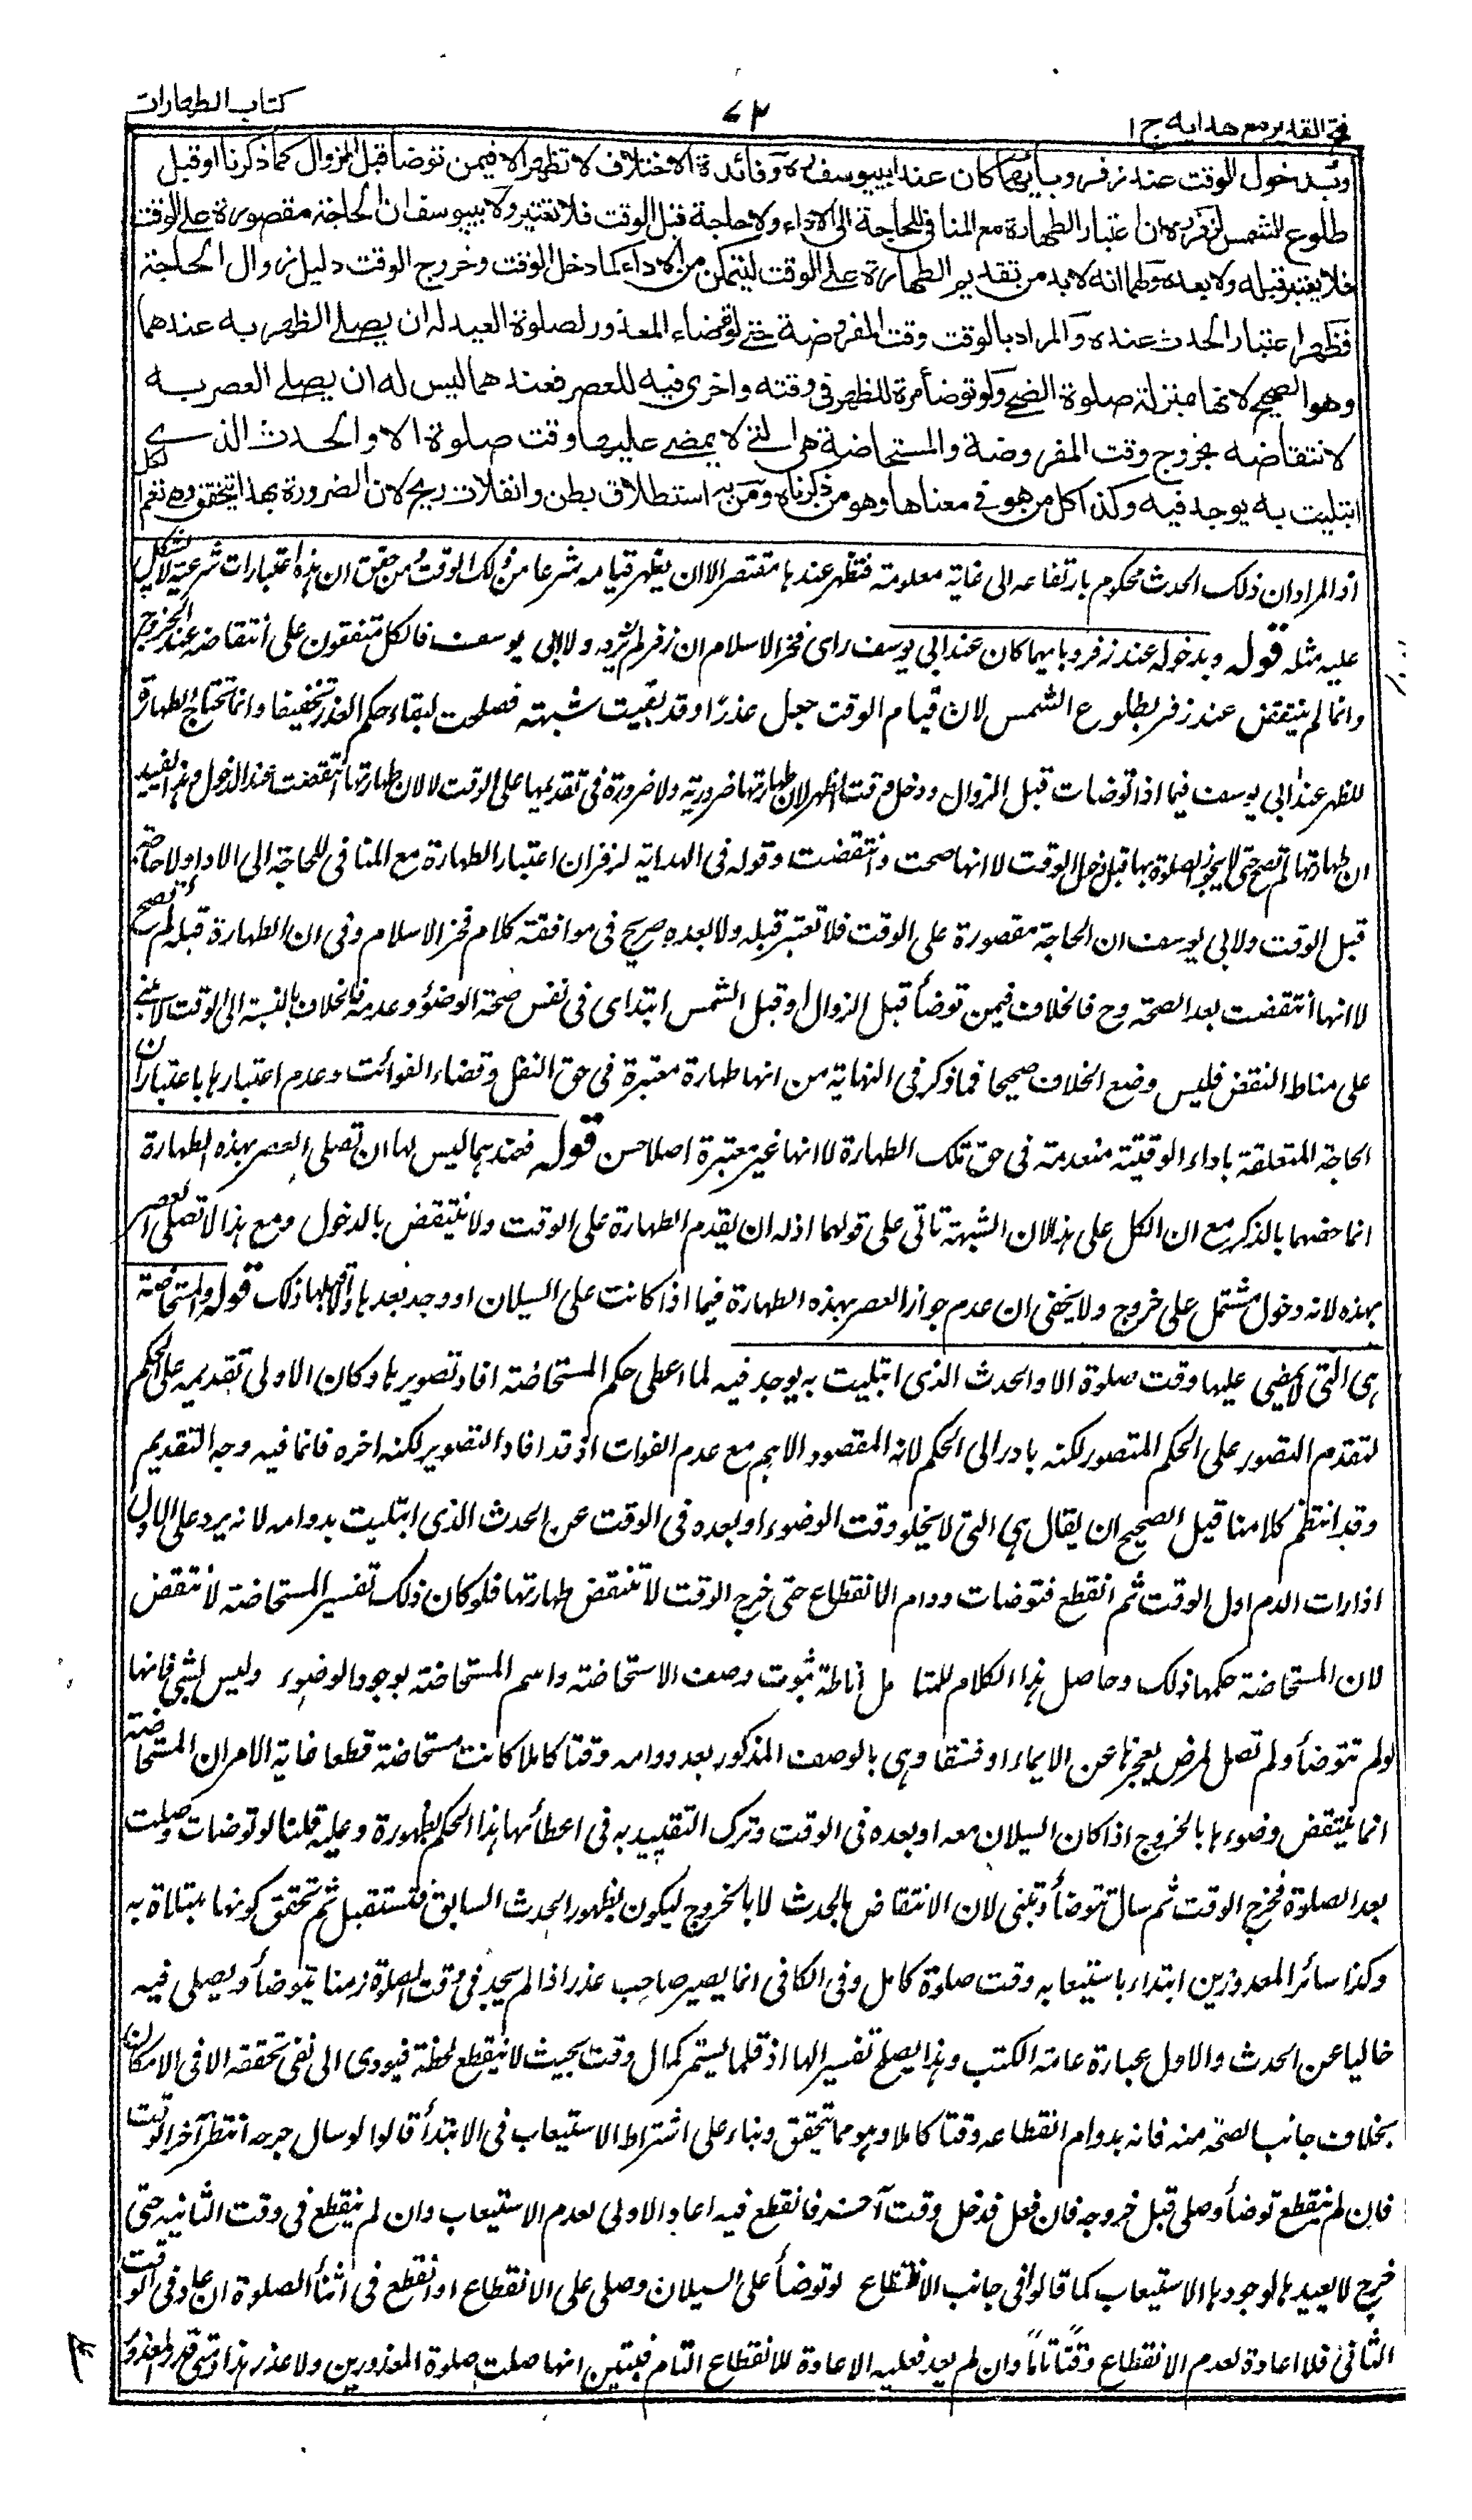 فتح القدير مع هدايه ج ا
٧٣
كتاب الطهارات
وبدخول الوقت عند زفر وبايهما كان عند ابيوسف ره وفائدة الاختلاف لا تظهر الا فيمن توضأ قبل الزوال كما ذكرنا او قبل
طلوع الشمس لزفر ره ان اعتبار الطهارة مع المنافي للحاجة الى الاداء ولا حاجة قبل الوقت فلا تعتبر ولابيوسف ان الحاجة مقصورة على الوقت
فلا يعتبر قبله ولا بعده ولهما انه لا بد من تقديم الطهارة على الوقت ليتمكن من الاداء كما دخل الوقت وخروج الوقت دليل زوال الحاجة
فظهر اعتبار الحدث عنده والمراد بالوقت وقت المفروضة حتى لو توضاء المعذور لصلوة العيد له ان يصلے الظهر به عندهما
وهو الصحيح لانها بمنزلة صلوة الضحے ولو توضأ مرة للظهر في وقته واخرى فيه للعصر فعندهما ليس له ان يصلے العصر به
لانتقاضه بخروج وقت المفروضة والمستحاضة هى التے لا يمضے عليها وقت صلوة الا والحدث الذى
ابتليت به يوجد فيه وكذا كل من هو في معناها وهو من ذكرناه ومن به استطلاق بطن وانفلات ريح لان الضرورة بهذا يتحقق وهى تعم الكل
اذ المراد ان ذلك الحدث محكوم بارتفاعه الى غاية معلومة فتظهر عندها مقتصر الا ان يظهر قيامه شرعا من ذلك الوقت ومن حقق ان هذه اعتبارات شرعية لا يشكل
عليه مثله قوله وبدخوله عند زفر وبايهما كان عند ابى يوسف راى فخر الاسلام ان زفر لم يرده ولا ابى يوسف فالكل متفقون على انتقاضه عند الخروج
وانما لم ينتقض عند زفر بطلوع الشمس لان قيام الوقت جعل عذرا وقد بقيت شبهته فصلحت لبقاء حكم العذر تخفيفا وانما تحتاج الطهارة
للظهر عند ابى يوسف فيما اذا توضات قبل الزوال ودخل وقت الظهر لان طهارتها ضرورية ولا ضرورة فى تقديمها على الوقت لا لان طهارتها انتقضت عند الدخول وهذا يفيد
ان طهارتها لم تصح حتى لا يجوز الصلوة بها قبل دخول الوقت لا انها صحت وانتقضت وقوله فى الهداية لزفر ان اعتبار الطهارة مع المنافى للحاجة الى الاداء ولا حاجة
قبل الوقت ولابى يوسف ان الحاجة مقصورة على الوقت فلا تعتبر قبله ولا بعده صريح فى موافقة كلام فخر الاسلام وفى ان الطهارة قبله لم تصح
لا انها انتقضت بعد الصحة وح فالخلاف فيمن توضأ قبل الزوال او قبل الشمس ابتداى فى نفس صحة الوضوء وعدمه فالخلاف بالنسبة الى الوقت لا ينبنى
على مناط النقض فليس وضع الخلاف صحيحا فما ذكر فى النهاية من انها طهارة معتبرة فى حق النفل وقضاء الفوائت وعدم اعتبارها باعتبار ان
الحاجة المتعلقة باداء الوقتية منعدمة فى حق تلك الطهارة لا انها غير معتبرة اصلا حسن قوله فعندهما ليس لها ان تصلى العصر بهذه الطهارة
انما خصهما بالذكر مع ان الكل على هذا لان الشبهة تاتى على قولهما اذ له ان يقدم الطهارة على الوقت ولا ينتقض بالدخول ومع هذا لا تصلى العصر
بهذه لانه دخول مشتمل على خروج ولا يخفى ان عدم جواز العصر بهذه الطهارة فيما اذا كانت على السيلان او وجد بعدها والا فلها ذلك قوله والمستحاضة
هى التى لا يمضى عليها وقت صلوة الا والحدث الذى ابتليت به يوجد فيه لما اعطى حكم المستحاضة افاد تصويرها وكان الاولى تقديمه على الحكم
لتقدم التصور على الحكم المتصور لكنه بادر الى الحكم لانه المقصود الاهم مع عدم الفوات اذ قد افاد التصوير لكنه اخره فانما فيه وجه التقديم
وقد انتظم كلامنا قيل الصحيح ان يقال هى التى لا يخلو وقت الوضوء او بعده فى الوقت عن الحدث الذى ابتليت بدوامه لانه يرد على الاول
اذا رات الدم اول الوقت ثم انقطع فتوضات ودام الانقطاع حتى خرج الوقت لا تنتقض طهارتها فلو كان ذلك تفسير المستحاضة لانتقض
لان المستحاضة حكمها ذلك وحاصل هذا الكلام للمتامل اناطة ثبوت وصف الاستحاضة واسم المستحاضة بوجود الوضوء وليس بشئ فانها
لو لم تتوضأ ولم تصل لمرض يعجزها عن الايماء او فسقا وهى بالوصف المذكور بعد دوامه وقتا كاملا كانت مستحاضة قطعا غاية الامر ان المستحاضة
انما ينتقض وضوءها بالخروج اذا كان السيلان معه او بعده فى الوقت وترك التقييد به فى اعطائها هذا الحكم لظهوره وعليه قلنا لو توضات وصلت
بعد الصلوة فخرج الوقت ثم سال تتوضأ وتبنى لان الانتقاض بالحدث لا بالخروج ليكون بظهور الحدث السابق فتستقبل ثم تحقق كونها مبتلاة به
وكذا سائر المعذورين ابتداء باستيعابه وقت صلوة كامل وفى الكافى انما يصير صاحب عذر اذا لم يجد فى وقت الصلوة زمنا يتوضأ ويصلى فيه
خاليا عن الحدث والاول عبارة عامة الكتب وهذا يصلح تفسيرا لها اذ قلما يستمر كمال وقت بحيث لا ينقطع لحظة فيودى الى نفى تحققه الا فى الامكان
بخلاف جانب الصحة منه فانه بدوام انقطاعه وقتا كاملا وهو مما يتحقق وبناء على اشتراط الاستيعاب فى الابتدأ قالوا لو سال جرحه انتظر آخر الوقت
فان لم ينقطع توضأ وصلى قبل خروجه فان فعل فدخل وقت آخر فانقطع فيه اعاد الاولى لعدم الاستيعاب وان لم ينقطع فى وقت الثانية حتى
خرج لا يعيدها لوجود الاستيعاب كما قالوا فى جانب الانقطاع لو توضأ على السيلان وصلى على الانقطاع او انقطع فى اثنأ الصلوة ان عاد فى الوقت
الثانى فلا اعادة لعدم الانقطاع وقتا تاما وان لم يعد فعليه الاعادة للانقطاع التام فتبين انها صلت صلوة المعذورين ولا عذر هذا ومتى قدر المعذور